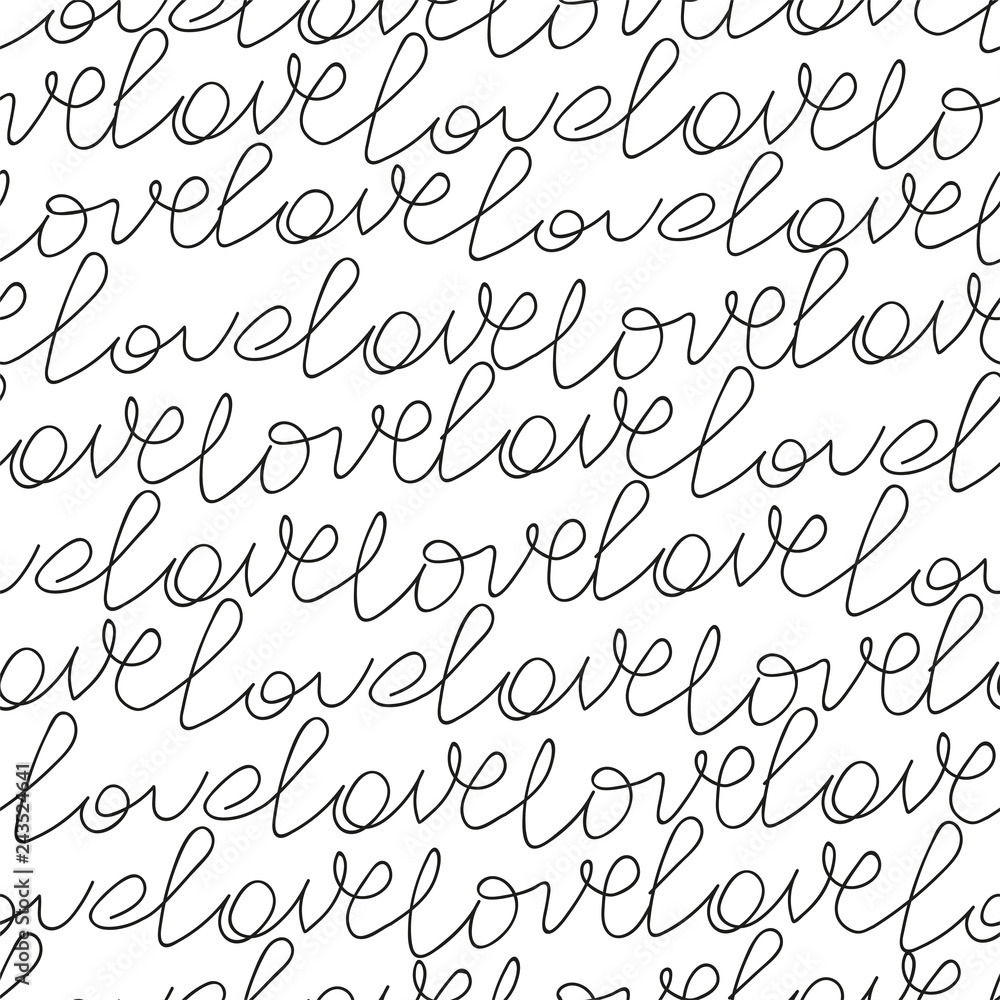 velovelovelovelo
lovelovelovelovel
elovelovelovelove
ovelovelovelovel
velovelovelovelov
ovelovelovelovelo
lovelovelovelove
ovelovelovelovelo
Adobe Stock | #243524641